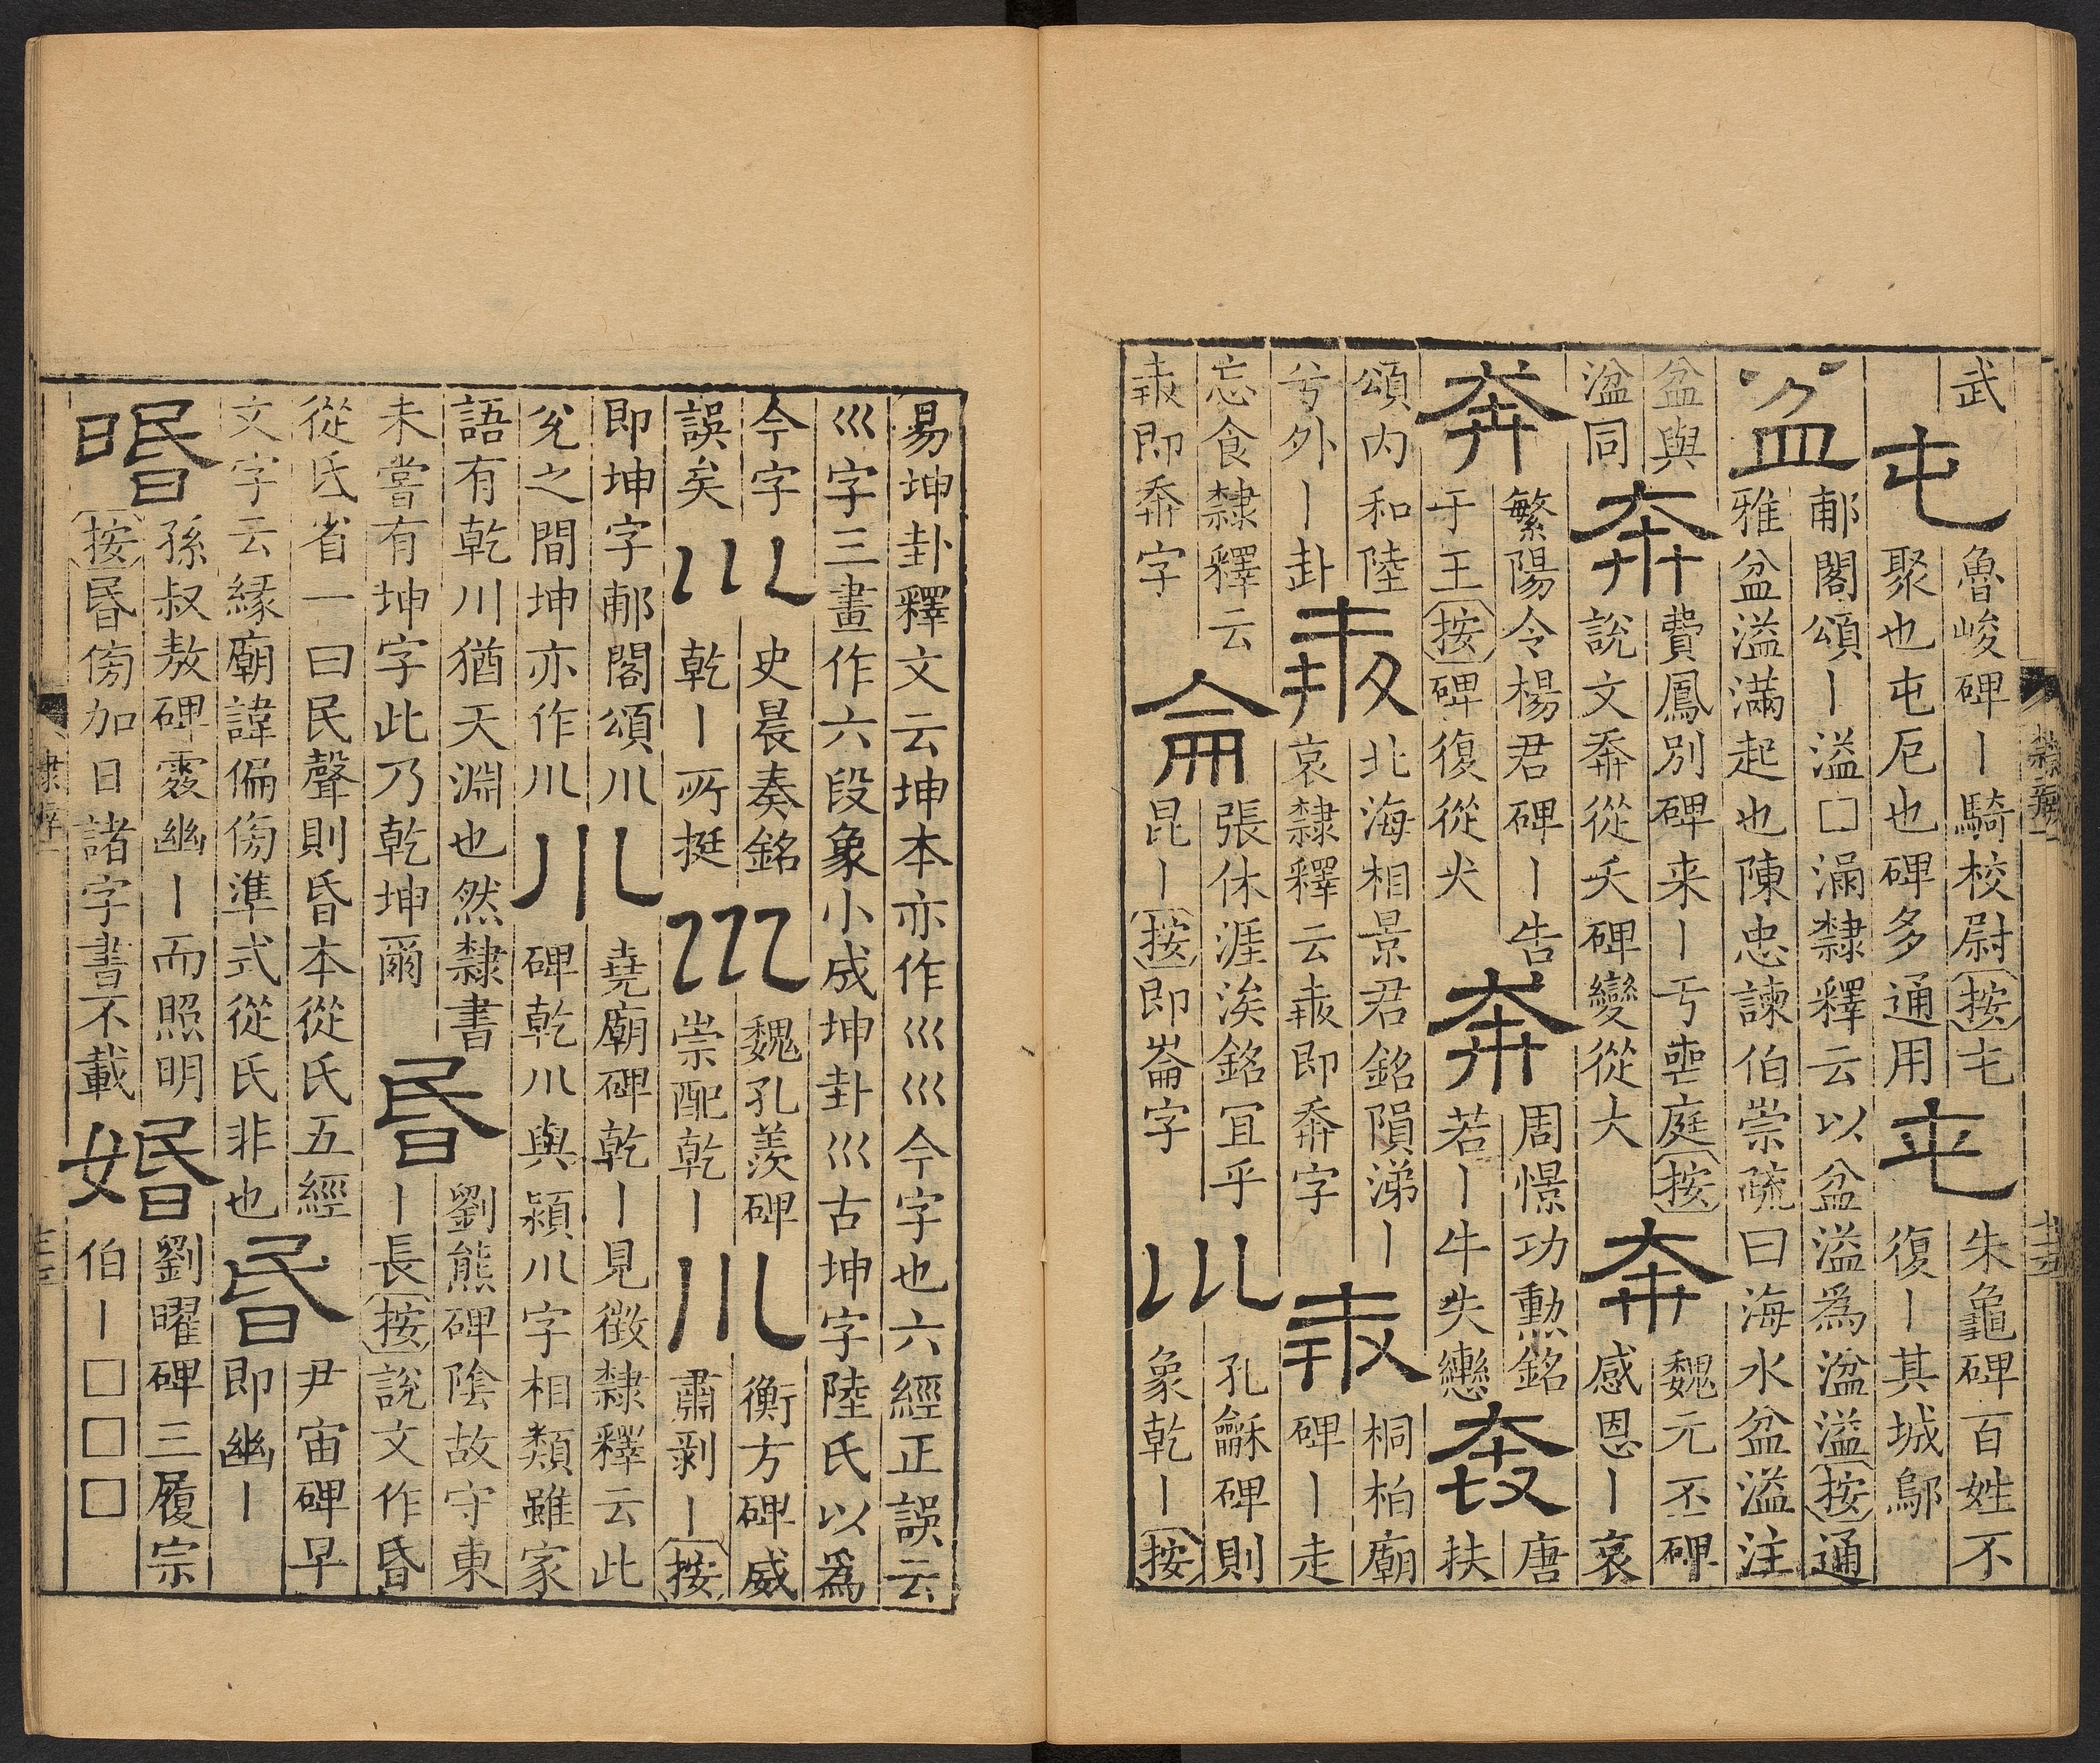 武
屯
魯峻碑〡騎校尉按屯
聚也屯厄也碑多通用
屯
朱龜碑百姓不
復〡其城鄔
盆
郙閣頌〡溢□漏隸釋云以盆溢爲湓溢按通
雅盆溢滿起也陳忠諫伯崇疏曰海水盆溢注
盆與
湓同
奔
費鳳別碑来〡亐庭按
說文奔從夭碑變從大
奔
魏元丕碑
感恩〡哀
奔
繁陽令楊君碑〡告
于王按碑復從犬
奔
周憬功勲銘
若〡牛失轡
奔
唐
扶
頌内和陸
兮外〡卦
𡘋
北海相景君銘隕涕〡
哀隸釋云𡘋即奔字
𡘋
桐柏廟
碑〡走
忘食隸釋云
𡘋即奔字
侖
張休涯涘銘冝乎
昆〡按即崙字
巛
孔龢碑則
象乾〡按
易坤卦釋文云坤本亦作巛巛今字也六經正誤云
巛字三畫作六段象小成坤卦巛古坤字陸氏以爲
今字
誤矣
巛
史晨奏銘
乾〡所挺
巛
魏孔羨碑
崇配乾〡
川
衡方碑威
肅剥〡按
即坤字郙閣頌川
兊之間坤亦作川
川
堯廟碑乾〡見徵隸釋云此
碑乾川與潁川字相類雖家
語有乾川猶天淵也然隸書
未嘗有坤字此乃乾坤爾
昬
劉熊碑陰故守東
〡長按說文作昏
從氐省一曰民聲則昏本從氏五經
文字云緣廟諱偏傍準式從氏非也
昬
尹宙碑早
即幽〡
㬳
孫叔敖碑幽〡而照明
按昬傍加日諸字書不載
婚
劉曜碑三履宗
伯〡□□□
隸辨
隸辨